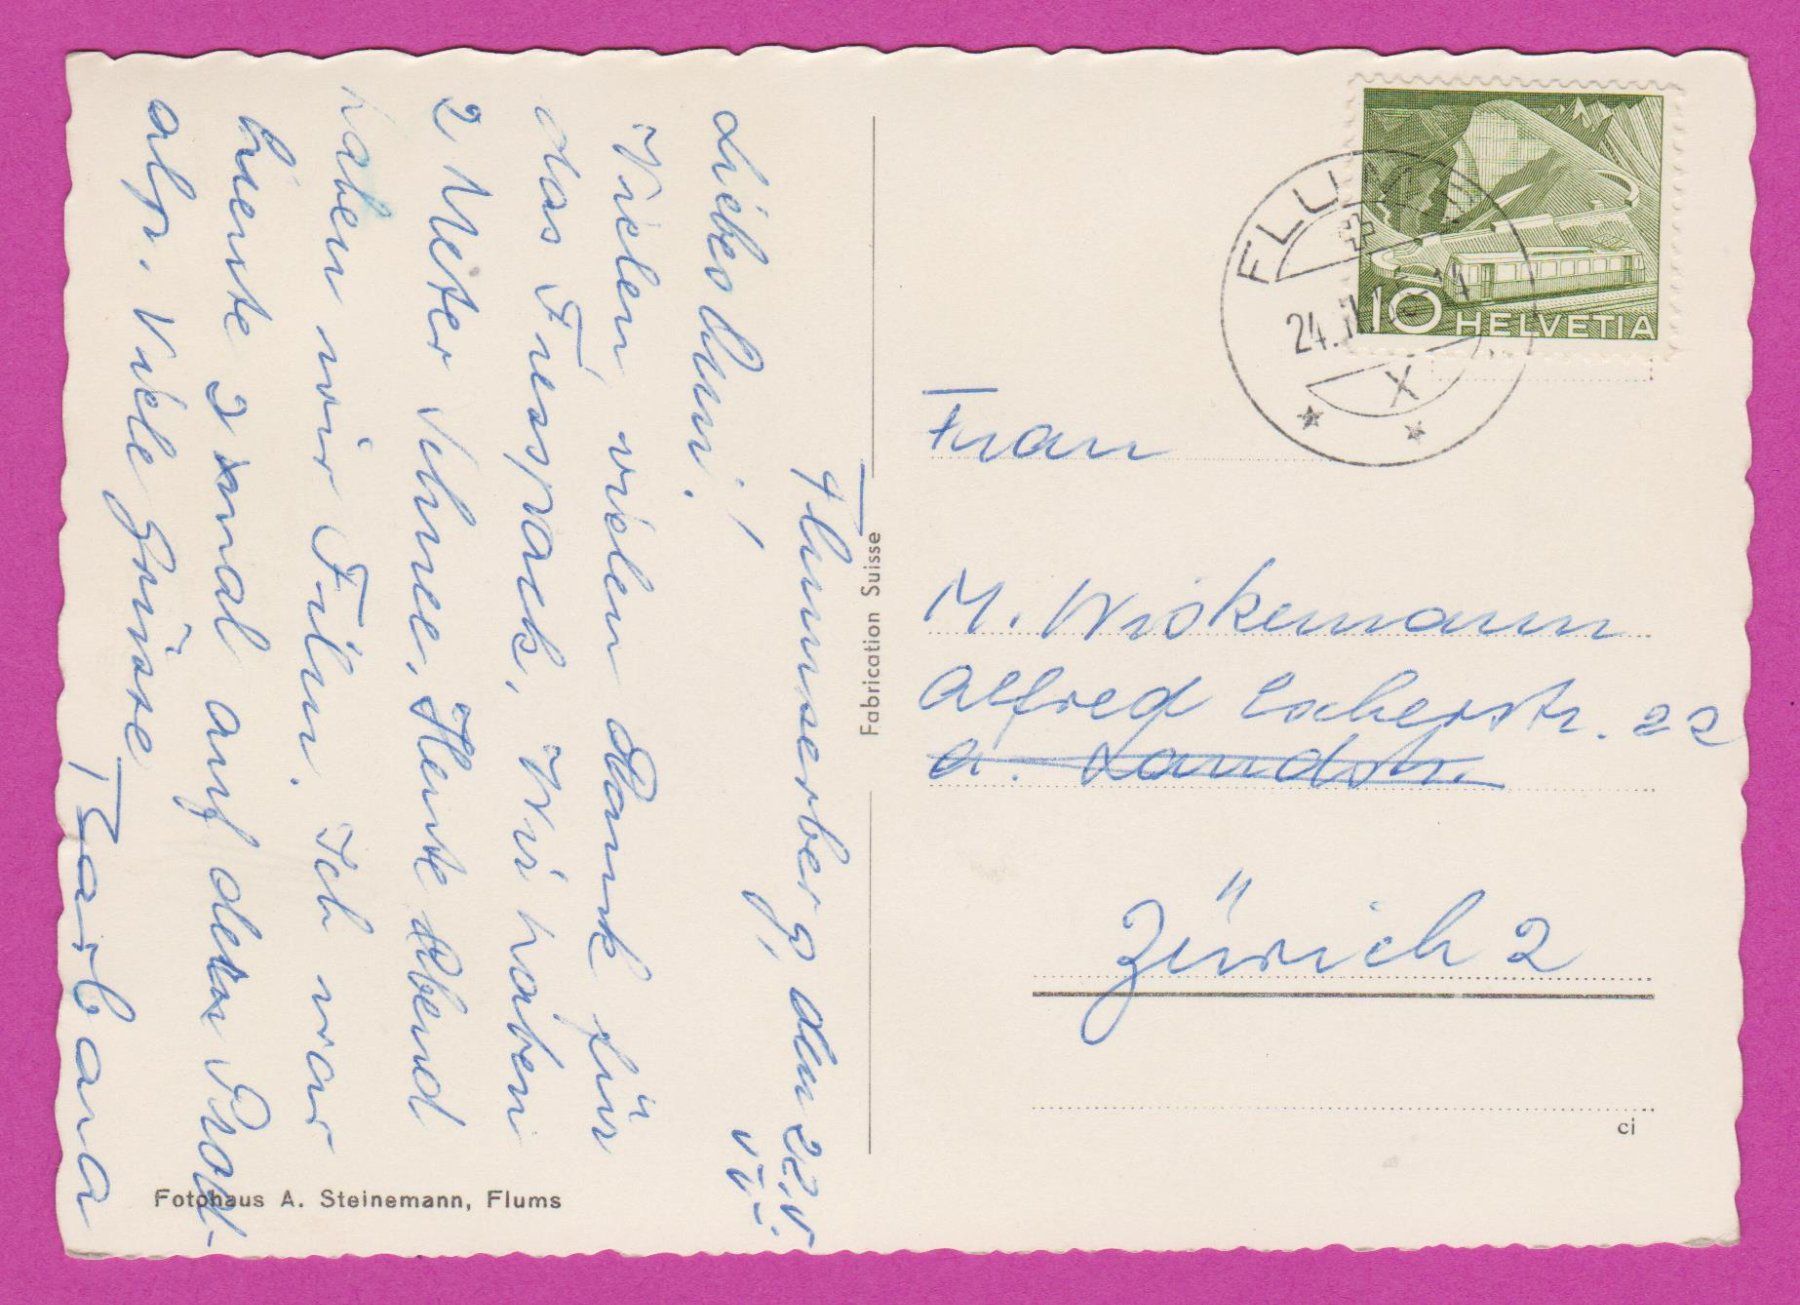 Flumserberg, den 22.
Liebes Omi!
Vielen, vielen Dank für
das Fresspack. Wir haben
2 Meter Schnee. Heute Abend
haben wir Film. Ich war
heute 2 mal auf dem Prod-
alp. Viele Grüsse
Barbara
Fotohaus A. Steinemann, Flums
Fabrication Suisse
FLUMS
24.
X
10 HELVETIA
Frau
M. Wiskemann
Alfred Escherstr. 22
a. Landstr.
Zürich 2
ci